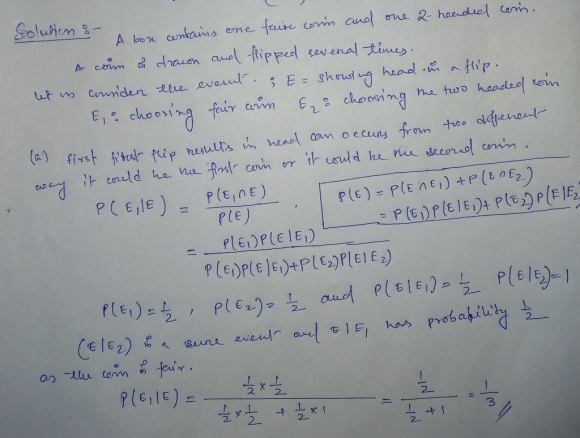 Solution :- A box contains one faire coin and one 2-headed coin.
A coin is drawn and flipped several times.
let us consider the event. ; E = showing head in a flip.
E₁ : choosing fair coin E₂ : choosing the two headed coin
(a) first flip results in head can occurs from two different
way it could be the first coin or it could be the second coin.
P(E₁|E) = P(E₁∩E) / P(E) , P(E) = P(E∩E₁) + P(E∩E₂)
= P(E₁)P(E|E₁) + P(E₂)P(E|E₂)
= P(E₁)P(E|E₁) / P(E₁)P(E|E₁)+P(E₂)P(E|E₂)
P(E₁) = 1/2 , P(E₂) = 1/2 and P(E|E₁) = 1/2 P(E|E₂)=1
(E|E₂) is a sure event and E|E₁ has probability 1/2
as the coin is fair.
P(E₁|E) = 1/2 × 1/2 / 1/2 × 1/2 + 1/2 × 1 = 1/2 / 1/2 + 1 = 1/3